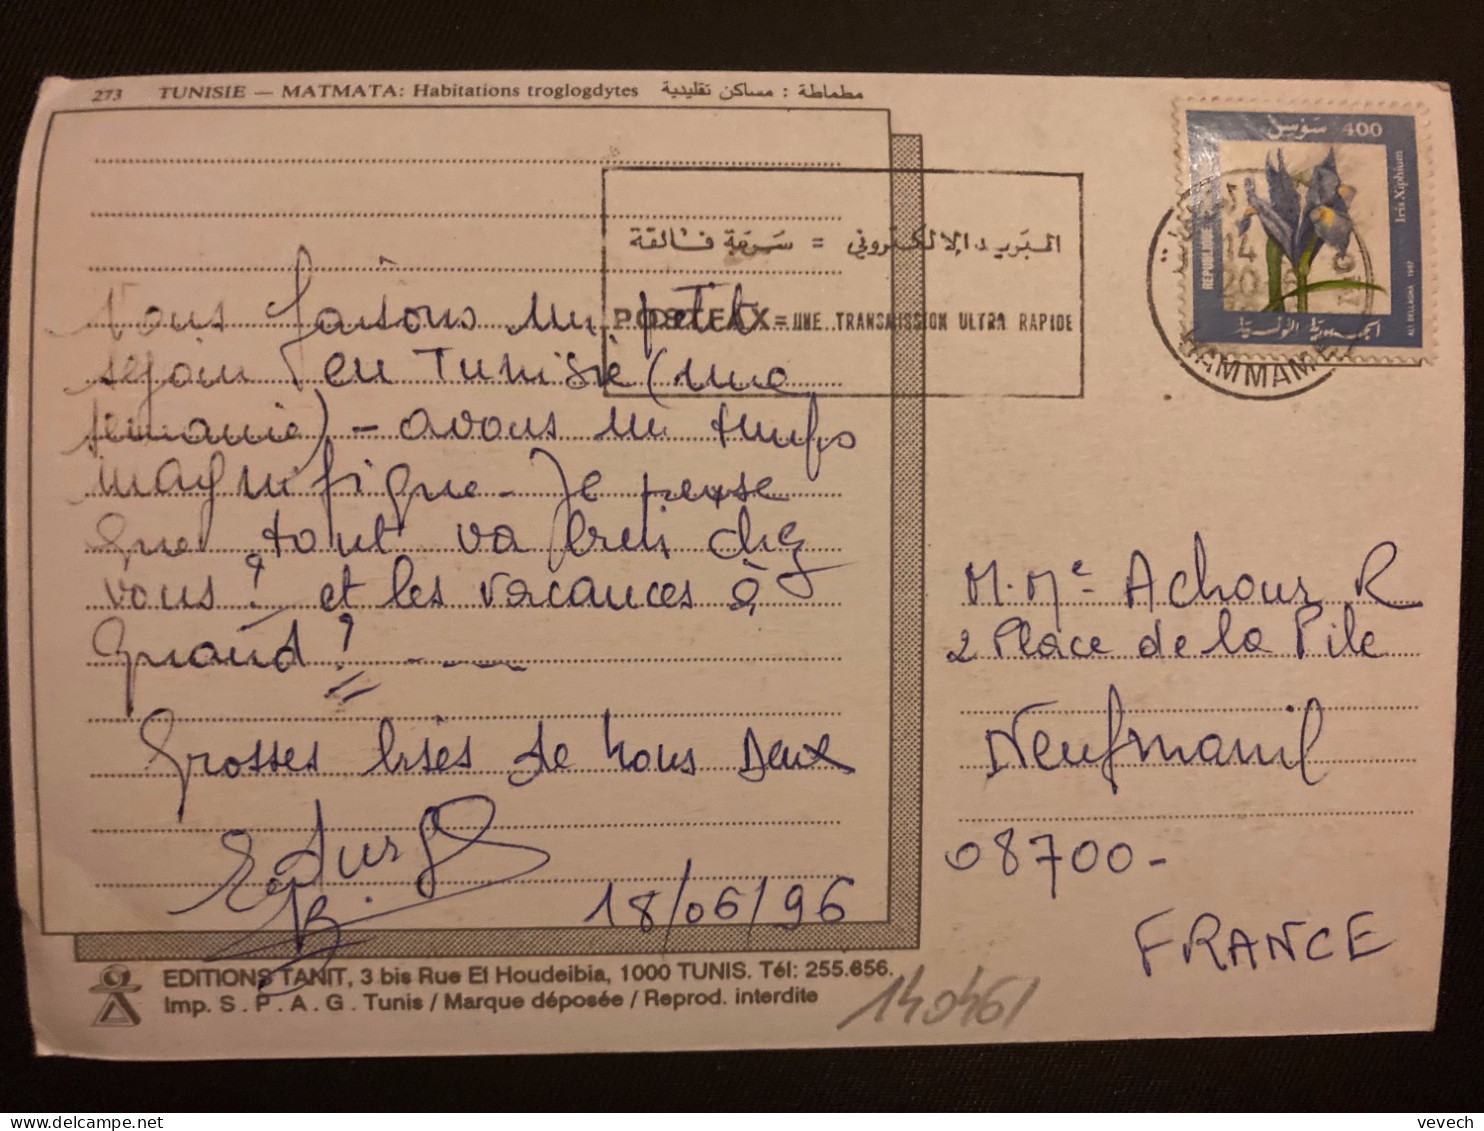 273 TUNISIE — MATMATA: Habitations troglogdytes مطماطة : مساكن تقليدية
400 سوسن
Iris Xiphium
REPUBLIQUE
ALI BELLAGHA 1987
الجمهورية التونسية
14
20
HAMMAMET
البريد الإلكتروني = سرعة فائقة
POSTEFAX = UNE TRANSMISSION ULTRA RAPIDE
Nous faisons un petit
sejour en Tunisie (une
semaine) - avons un temps
magnifique - Je pense
que tout va bien chez
vous ? et les vacances à
quand ? - - - -
Grosses bises de nous deux
18/06/96
M. Me Achour R
2 Place de la Pile
Neufmanil
08700 -
FRANCE
EDITIONS TANIT, 3 bis Rue El Houdeibia, 1000 TUNIS. Tél: 255.656.
Imp. S.P.A.G. Tunis / Marque déposée / Reprod. interdite
vevech